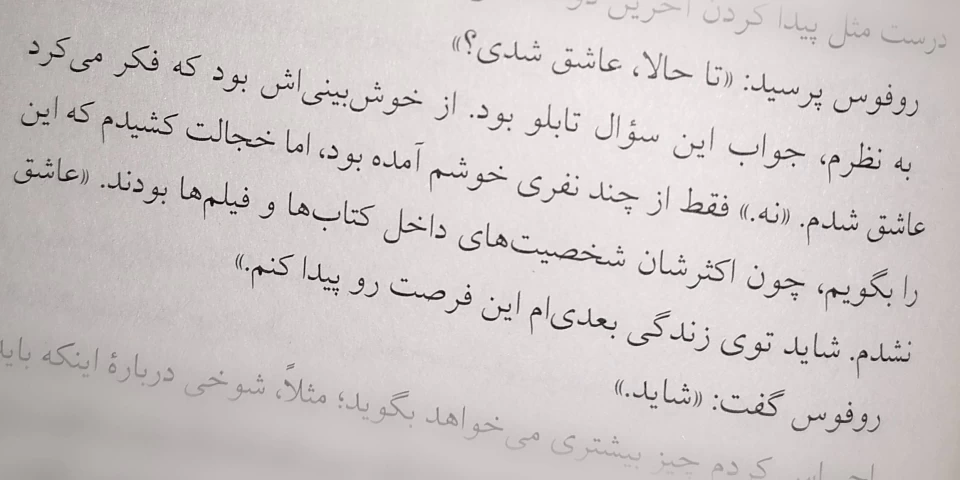 درست مثل پیدا کردن آخرین
روفوس پرسید: «تا حالا، عاشق شدی؟»
به نظرم، جواب این سؤال تابلو بود. از خوش‌بینی‌اش بود که فکر می‌کرد
عاشق شدم. «نه.» فقط از چند نفری خوشم آمده بود، اما خجالت کشیدم که این
را بگویم، چون اکثرشان شخصیت‌های داخل کتاب‌ها و فیلم‌ها بودند. «عاشق
نشدم. شاید توی زندگی بعدی‌ام این فرصت رو پیدا کنم.»
روفوس گفت: «شاید.»
احساس کردم چیز بیشتری می‌خواهد بگوید؛ مثلاً، شوخی دربارهٔ اینکه باید